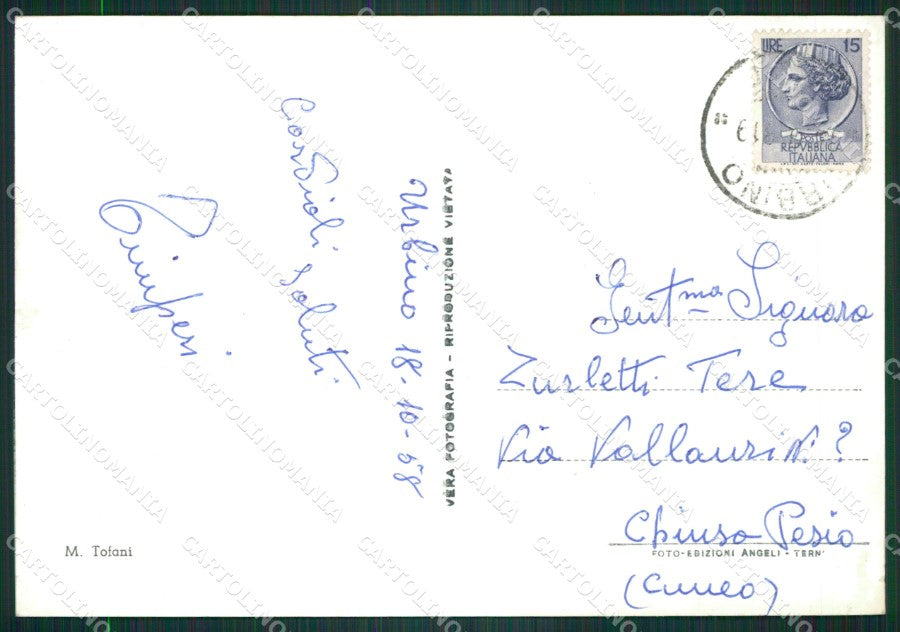 Urbino 18-10-58
Cordiali Saluti
VERA FOTOGRAFIA - RIPRODUZIONE VIETATA
M. Tofani
LIRE 15
POSTE
REPVBBLICA
ITALIANA
URBINO
Gent.ma Signora
Zurletti Tere
Via Vallauri N. ?
Chiusa Pesio
FOTO-EDIZIONI ANGELI - TERNI
(Cuneo)
CARTOLINOMANIA